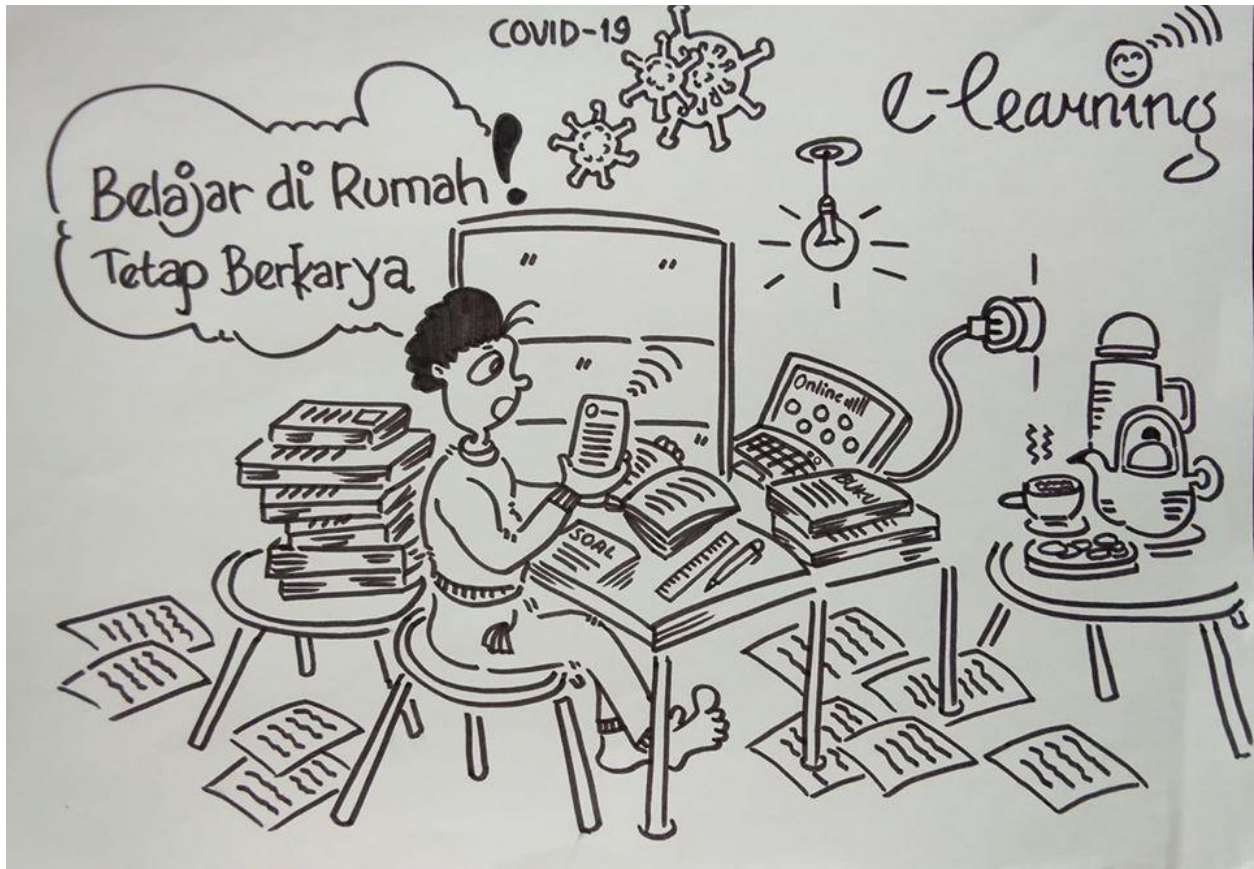 COVID-19
e-learning
Belajar di Rumah!
Tetap Berkarya
Online
BUKU
SOAL